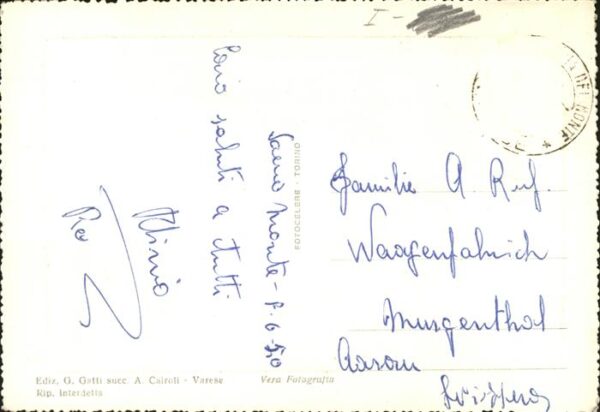 I -
DEL MONTE
Sacro Monte - 8.6.50
Cari saluti a tutti
Pia
FOTOCELERE - TORINO
Familie A. Ruf.
Waagenfabrick
Murgenthal
Aarau
Svizzera
Ediz. G. Gatti succ. A. Cairoli - Varese
Rip. Interdetta
Vera Fotografia